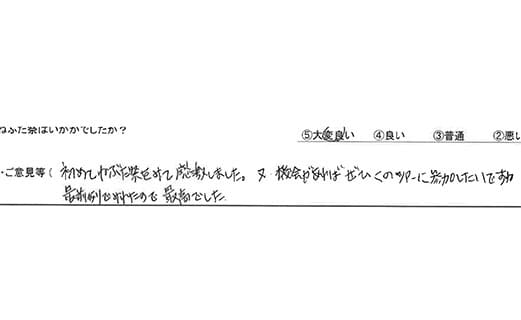 ねぶた祭はいかがでしたか？
⑤大変良い ④良い ③普通 ②悪い
・ご意見等( 初めてねぶた祭を見れて感激しました。又、機会があればぜひこのツアーに参加したいですね
最前列で見れたので最高でした